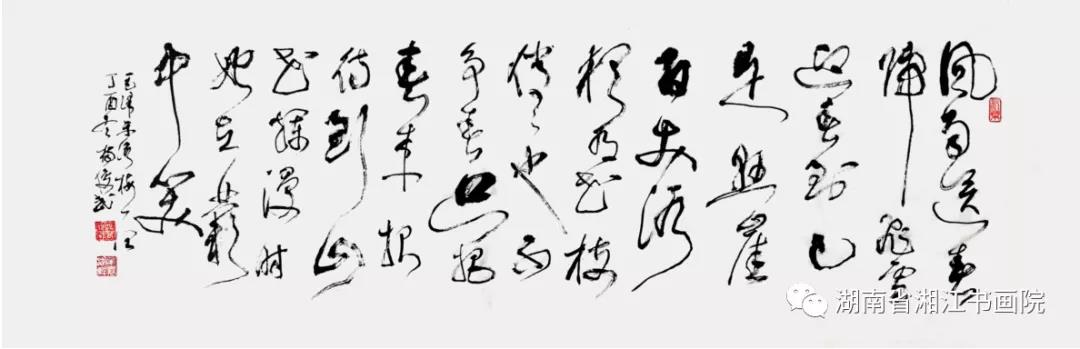 风雨送春
归飞雪
迎春到已
是悬崖
百丈冰
犹有花枝
俏々也不
争春只把
春来报
待到山
花烂漫时
她在丛
中笑
毛泽东咏梅
丁酉冬
湖南省湘江书画院